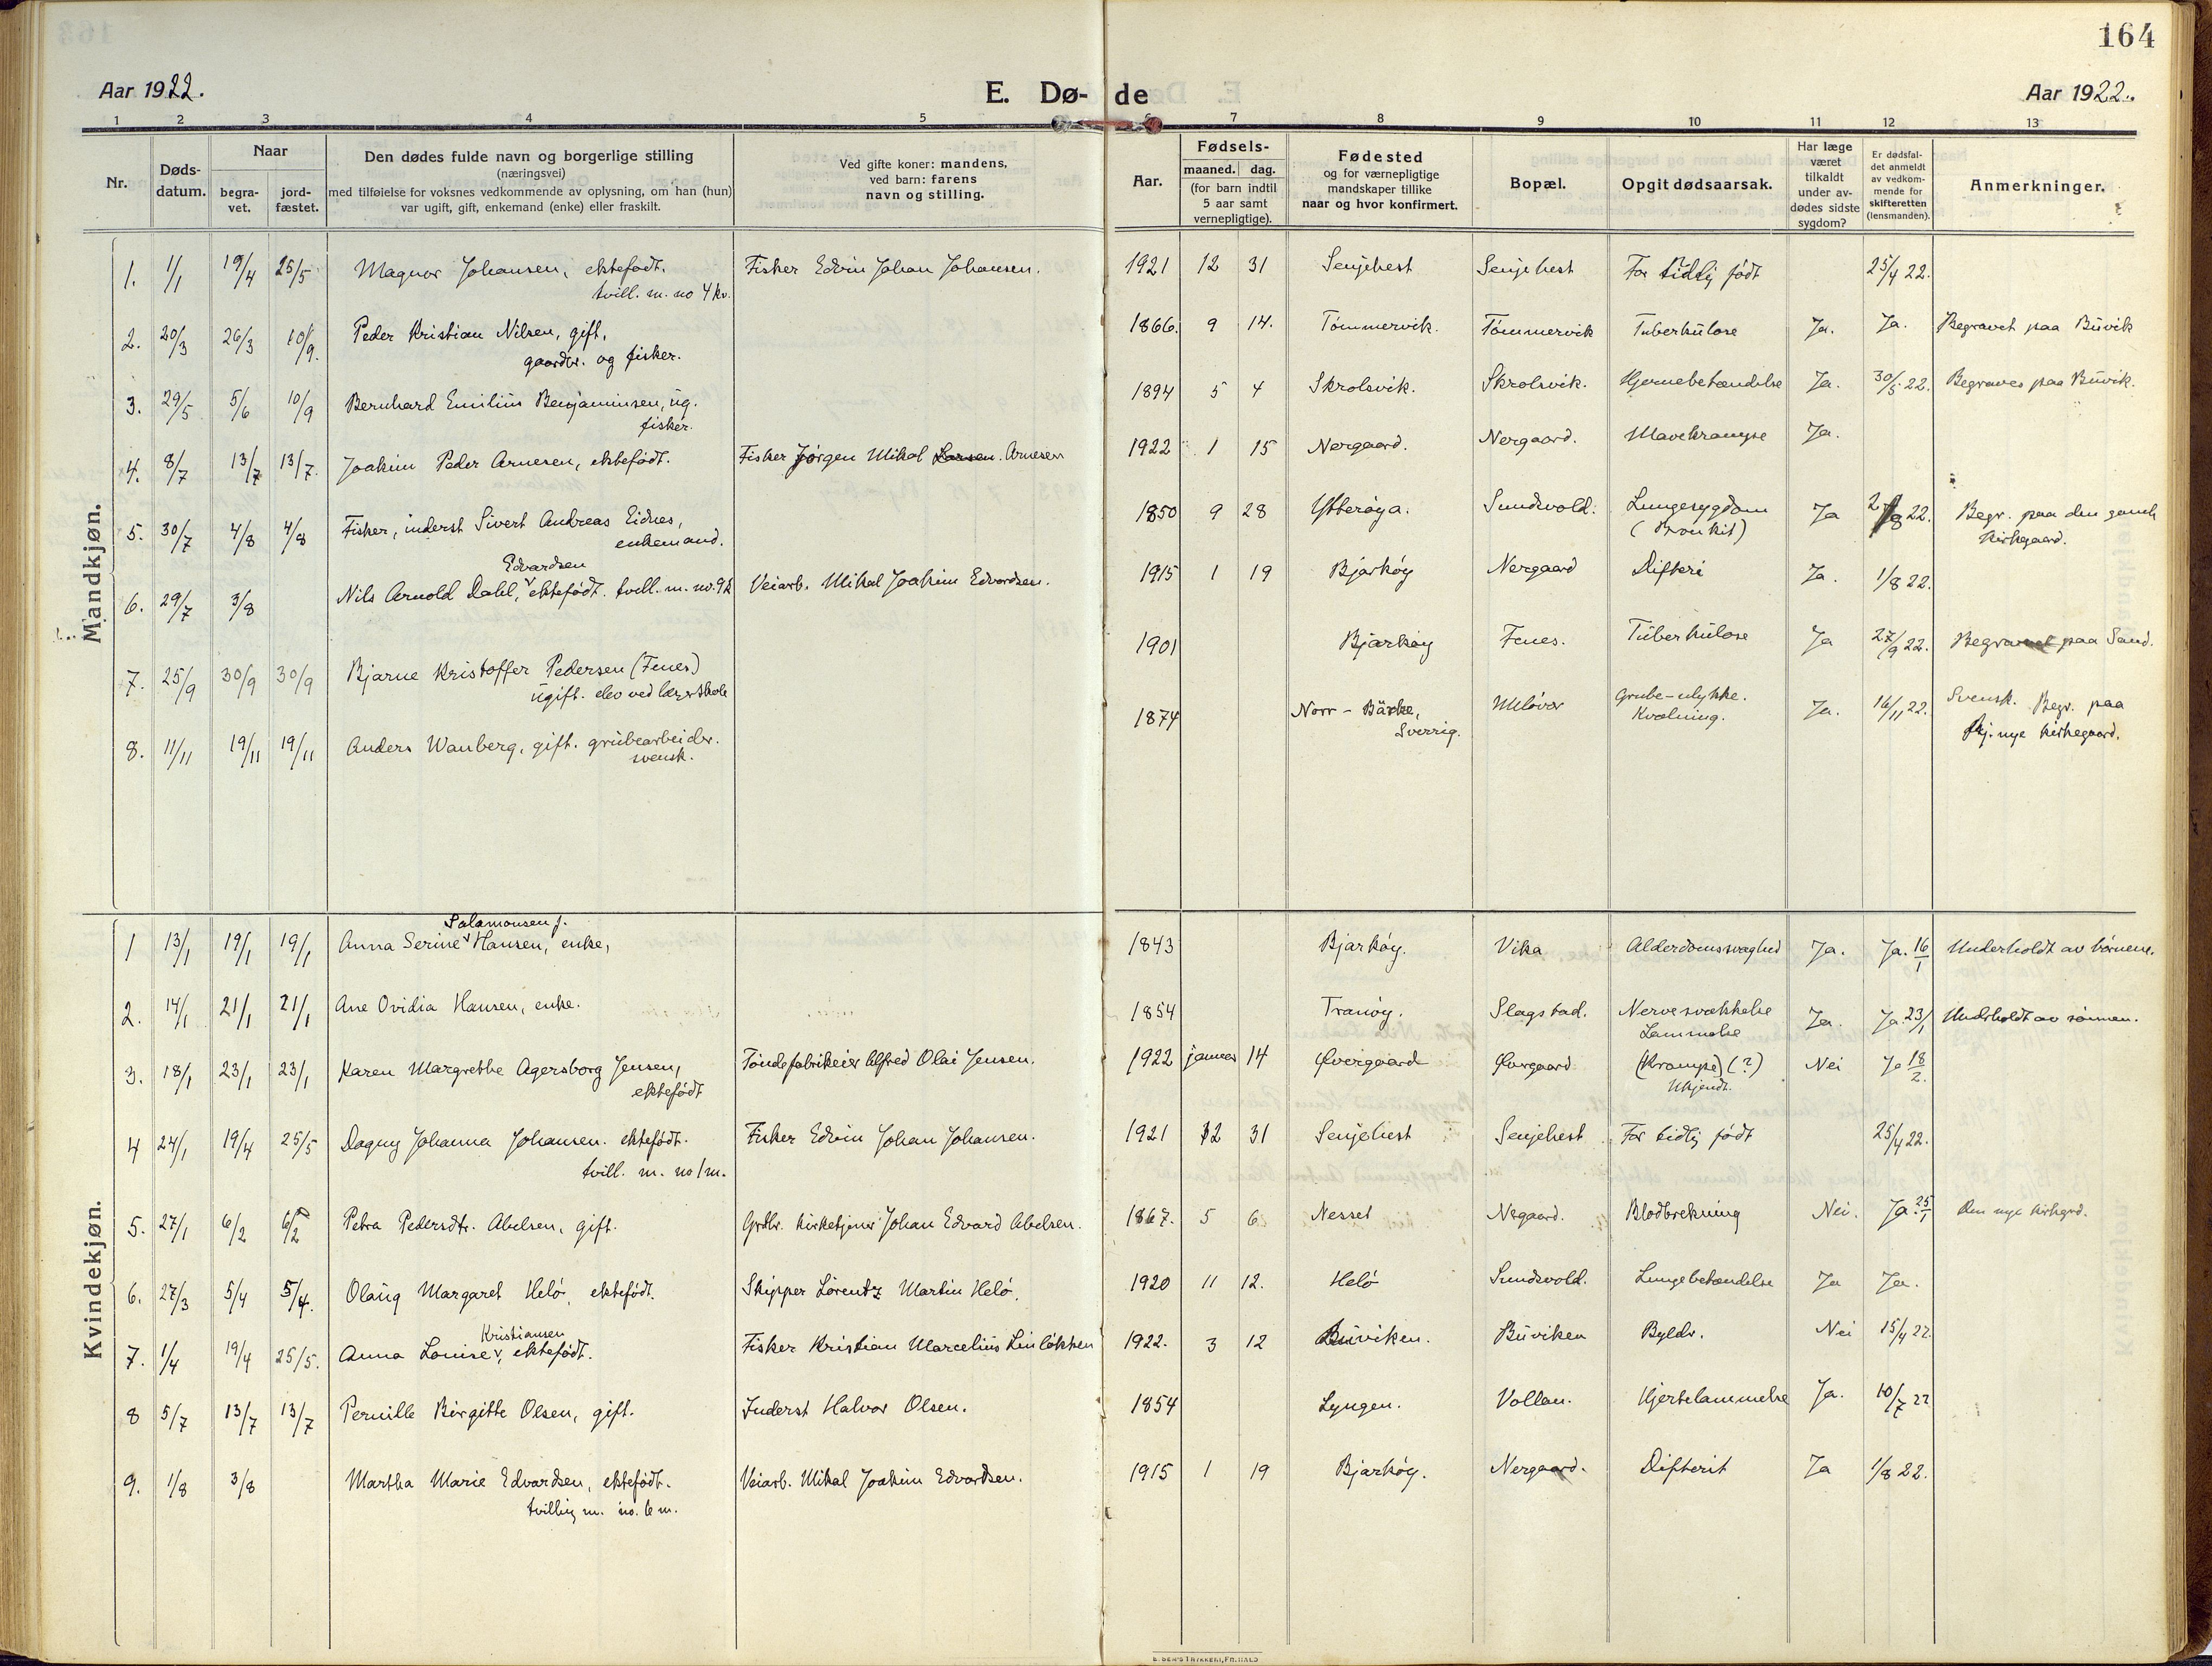 164
Aar 1922.
E. Dø- de
Aar 1922.
1 2 3 4 5 6 7 8 9 10 11 12 13
Nr.
Døds-
datum.
Naar
begra-
vet.
jord-
fæstet.
Den dødes fulde navn og borgerlige stilling
(næringsvei)
med tilføielse for voksnes vedkommende av oplysning, om han (hun)
var ugift, gift, enkemand (enke) eller fraskilt.
Ved gifte koner: mandens,
ved barn: farens
navn og stilling.
Aar.
Fødsels-
maaned. dag.
(for barn indtil
5 aar samt
vernepligtige).
Fødested
og for værnepligtige
mandskaper tillike
naar og hvor konfirmert.
Bopæl.
Opgit dødsaarsak.
Har læge
været
tilkaldt
under av-
dødes sidste
sygdom?
Er dødsfal-
det anmeldt
av vedkom-
mende for
skifteretten
(lensmanden).
Anmerkninger.
Mandkjøn.
1. 1/1 19/4 25/5 Magnor Johansen, ektefødt. Fisker Edvin Johan Johansen. 1921 12 31 Senjehest Senjehest For tidlig født 25/4 22.
tvill. m. no 4 kv.
2. 20/3 26/3 10/9. Peder Kristian Nilsen, gift, 1866. 9 14. Tømmervik. Tømmervik Tuberkulose Ja. Ja. Begravet paa Buvik
gaardbr. og fisker.
3. 29/5 5/6 10/9 Bernhard Emilius Benjaminsen, ug. 1894 5 4 Skrolsvik. Skrolsvik. Hjernebetændelse Ja. 30/5 22. Begraves paa Buvik.
fisker.
4. 8/7 13/7 13/7. Joakim Peder Arnesen, ektefødt. Fisker Jørgen Mikal Larsen. Arnesen 1922 1 15 Nergaard. Nergaard. Mavekrampe Ja.
5. 30/7 4/8 4/8 Fisker, inderst Sivert Andreas Eidnes, 1850 9 28 Ytterøya. Sundsvold. Lungesygdom Ja 22. Begr. paa den gamle
enkemand. (Bronkit) kirkegaard.
Edvardsen
6. 29/7 3/8 Nils Arnold Dahl, ektefødt. tvill. m. no. 9 k Veiarb. Mikal Joakim Edvardsen. 1915 1 19 Bjarkøy Nergaard Difteri Ja. 1/8 22.
7. 25/9 30/9 30/9 Bjarne Kristoffer Pedersen (Fenes) 1901 Bjarkøy Fenes. Tuberkulose Ja 27/9 22. Begravet paa Sand.
ugift. elev ved lærerskole
8. 11/11 19/11 19/11 Anders Wanberg, gift. grubearbeider. 1874 Norr-Bärke, Grube-ulykke. Ja. 16/11 22. Svensk. Begr. paa
svensk. Sverrig. Kvælning. Bj. nye kirkegaard.
Kvindekjøn.
Salamonsen f.
1 13/1 19/1 19/1 Anna Serine Hansen, enke, 1843 Bjarkøy. Vika Alderdomssvaghed Ja. Ja. 16/1 Underholdt av børnene.
2. 14/1 21/1 21/1 Ane Ovidia Hansen, enke. 1854 Tranøy. Slagstad. Nervesvækkelse Ja. Ja. 23/1 Underholdt av sønnen.
Lammelse
3. 18/1 23/1 23/1 Karen Margrethe Agersborg Jensen, Tøndefabrikeier Alfred Olai Jensen. 1922 januar 14 Øvergaard Øvergaard (Krampe) (?) Nei Ja 18/2.
ektefødt Ukjendt.
4 24/1 19/4 25/5 Dagny Johanna Johansen. ektefødt. Fisker Edvin Johan Johansen. 1921 12 31 Senjehest Senjehest For tidlig født 25/4 22.
tvill. m. no 1 m.
5. 27/1 6/2 6/2 Petra Pedersdtr. Abelsen, gift. Grdbr. kirketjener Johan Edvard Abelsen. 1867. 5 6 Nesset Nergaard. Blodbrekning Nei. Ja. 25/1 Den nye kirkegrd.
6. 27/3 5/4 5/4. Olaug Margaret Helø, ektefødt. Skipper Lorentz Martin Helø. 1920 11 12. Helø Sundsvold. Lungebetændelse Ja Ja.
Kristiansen
7. 1/4 19/4 25/5. Anna Louise, ektefødt. Fisker Kristian Marcelius Linløkken 1922. 3 12 Buviken. Buviken Byldr. Nei 15/4 22.
8 5/7 13/7 13/7 Pernille Birgitte Olsen, gift. Inderst Halvor Olsen. 1854 Lyngen. Vollan. Hjertelammelse Ja. 10/7 22
9. 1/8 3/8 Martha Marie Edvardsen, ektefødt. Veiarb. Mikal Joakim Edvardsen. 1915 1 19 Bjarkøy. Nergaard. Difterit Ja 1/8 22.
tvilling m. no. 6 m.